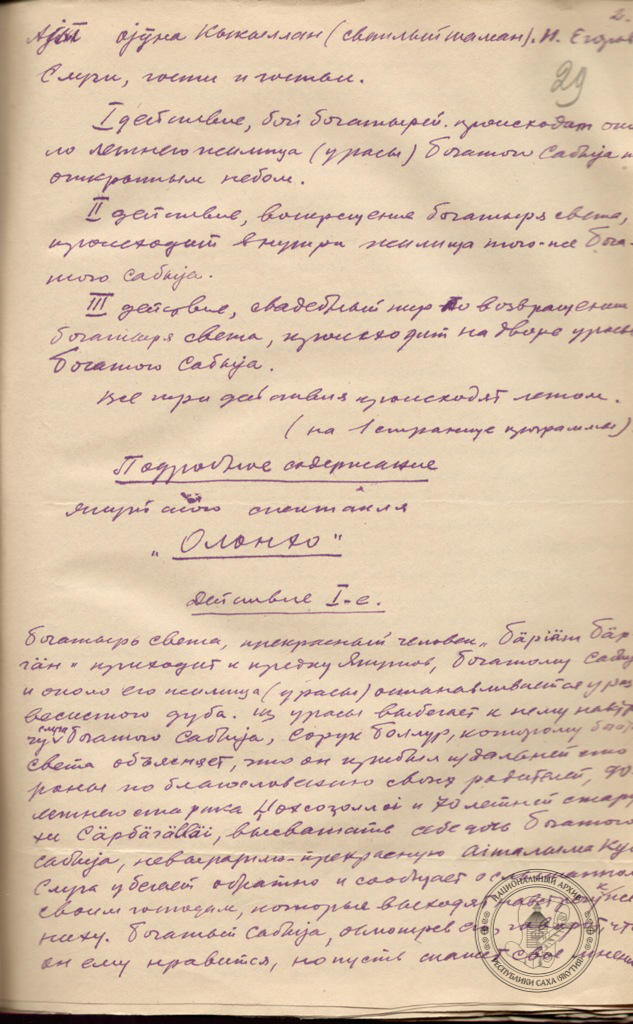 2.
29
Ajыы ојуна Кыкыллан (светлый шаман). И. Егоров
Слуги, гости и гостьи.
I действие, бой богатырей происходит око-
ло летнего жилища (урасы) богатого Сабыја п
открытым небом.
II действие, воскрешение богатыря света,
происходит внутри жилища того-же бога-
того Сабыја.
III действие, свадебный пир по возвращении
богатыря света, происходит на дворе урасы
богатого Сабыја.
Все три действия происходят летом.
(на 1 странице программы)
Подробное содержание
якутского спектакля
„Олонхо"
Действие I-е.
Богатырь света, прекрасный человек „Бäрiäт Бäр
гäн" приходит к предку Якутов, богатому Сабыја
и около его жилища (урасы) останавливается у раз
весистого дуба. Из урасы выбегает к нему навстре
чу слуга богатого Сабыја, Сорук Боллур, которому бога
света объясняет, что он прибыл из дальней сто
роны по благословению своих родителей,
летнего старика и 70 летней стару
хи Сäрбäгäллäi, высватать себе дочь богатого
Сабыја, невыразимо-прекрасную Аiталыма Ку
Слуга убегает обратно и сообщает о
своим господам, которые выходят навстречу к же
ниху. Богатый Сабыја, осмотрев его, говорит что
он ему нравится, но пусть скажет свое мнение
НАЦИОНАЛЬНЫЙ АРХИВ
РЕСПУБЛИКИ САХА (ЯКУТИЯ)